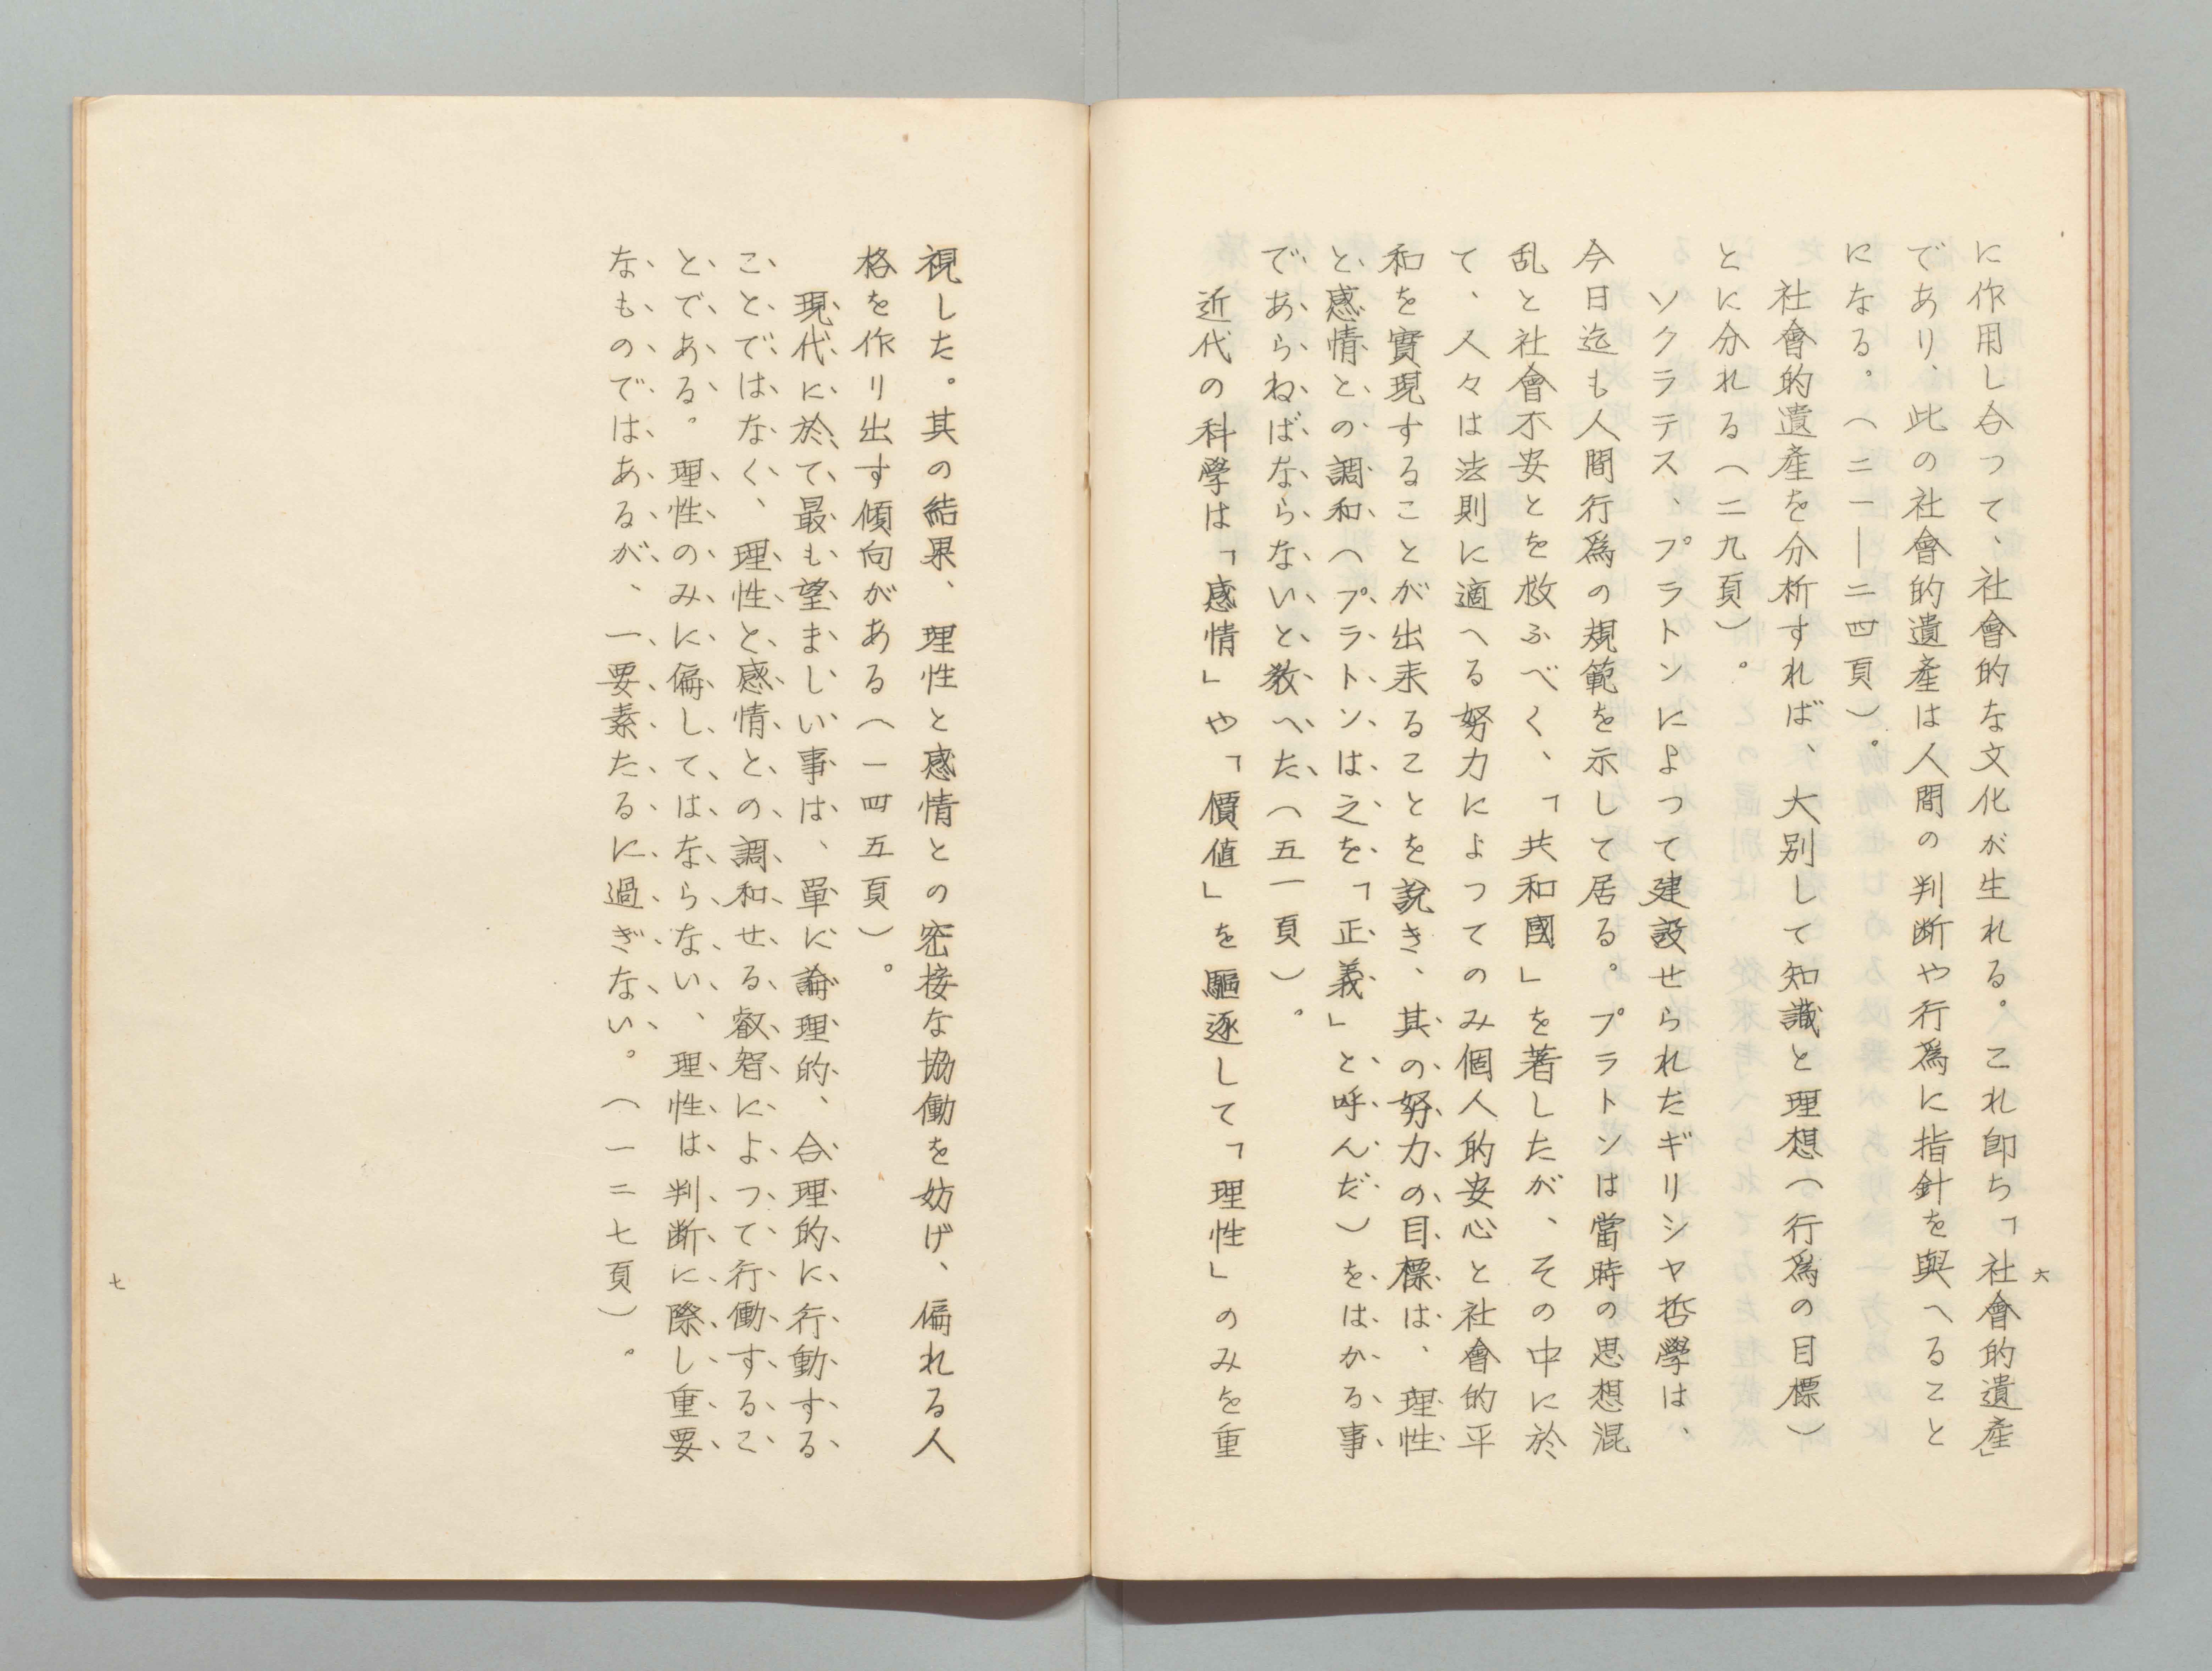 に作用し合つて、社會的な文化が生れる。これ卽ち「社會的遺產」
であり、此の社會的遺產は人間の判断や行爲に指針を與へること
になる。(二一―二四頁)。
社會的遺產を分析すれば、大別して知識と理想(行爲の目標)
とに分れる(二九頁)。
ソクラテス、プラトンによつて建設せられたギリシヤ哲學は、
今日迄も人間行爲の規範を示して居る。プラトンは當時の思想混
乱と社會不安とを救ふべく、「共和國」を著したが、その中に於
て、人々は法則に適へる努力によつてのみ個人的安心と社會的平
和を實現することが出来ることを說き、其の努力の目標は、理性
と感情との調和(プラトンは之を「正義」と呼んだ)をはかる事
であらねばならないと教へた(五一頁)。
近代の科學は「感情」や「價値」を驅逐して「理性」のみを重
六
視した。其の結果、理性と感情との密接な協働を妨げ、偏れる人
格を作り出す傾向がある(一四五頁)。
現代に於て最も望ましい事は、單に論理的、合理的に行動する
ことではなく、理性と感情との調和せる叡智によつて行働するこ
とである。理性のみに偏してはならない、理性は判断に際し重要
なものではあるが、一要素たるに過ぎない。(一二七頁)。
七